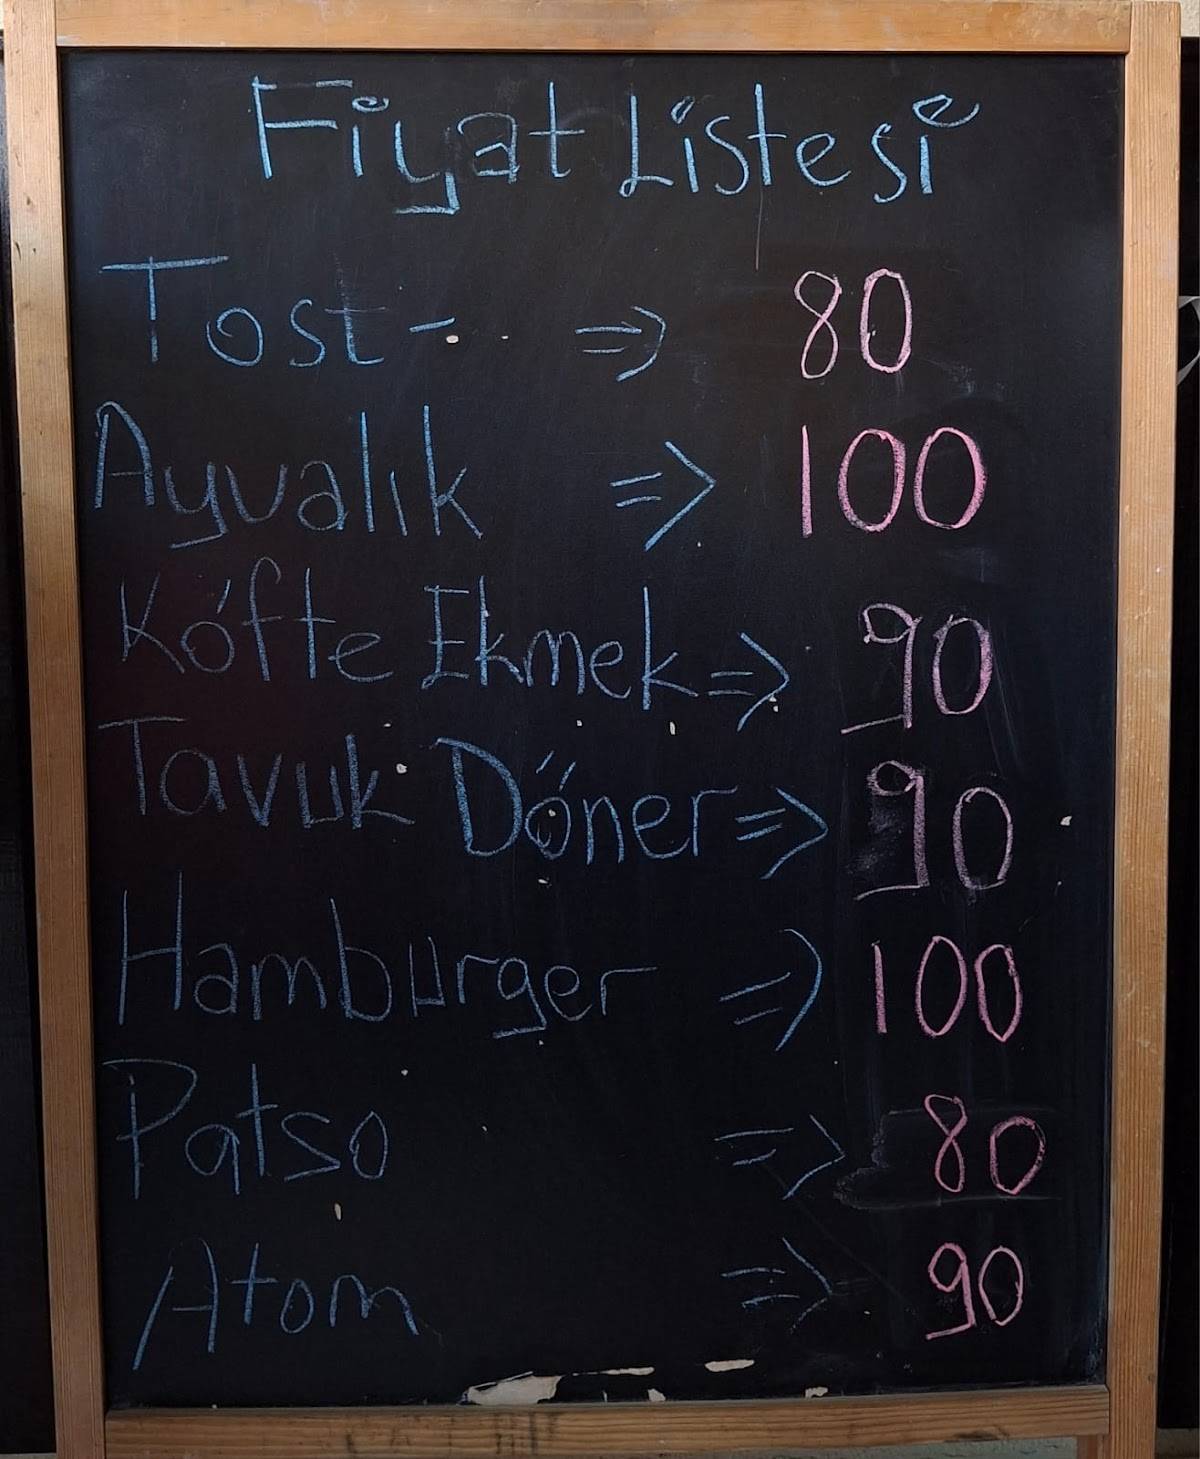 Fiyat Listesi
Tost - => 80
Ayvalık => 100
Köfte Ekmek => 90
Tavuk Döner => 90
Hamburger => 100
Patso => 80
Atom => 90